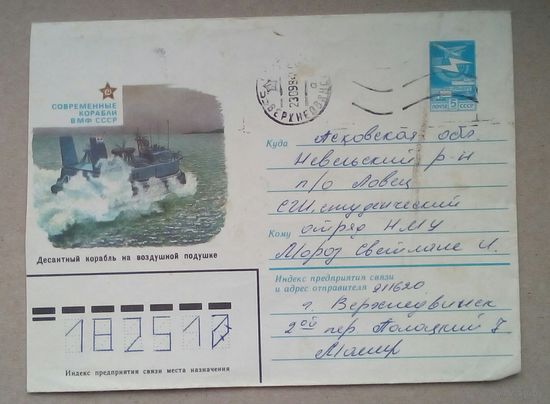 СОВРЕМЕННЫЕ
КОРАБЛИ
ВМФ СССР
Десантный корабль на воздушной подушке
ПОЧТА 5 СССР
Куда Псковская обл.
Невельский р-н
п/о Ловец
студенческий
Кому отряд НМУ
Мороз Светлане И.
Индекс предприятия связи
и адрес отправителя 211620
г. Верхнедвинск
2ой пер. Полоцкий 7
182517
Индекс предприятия связи места назначения